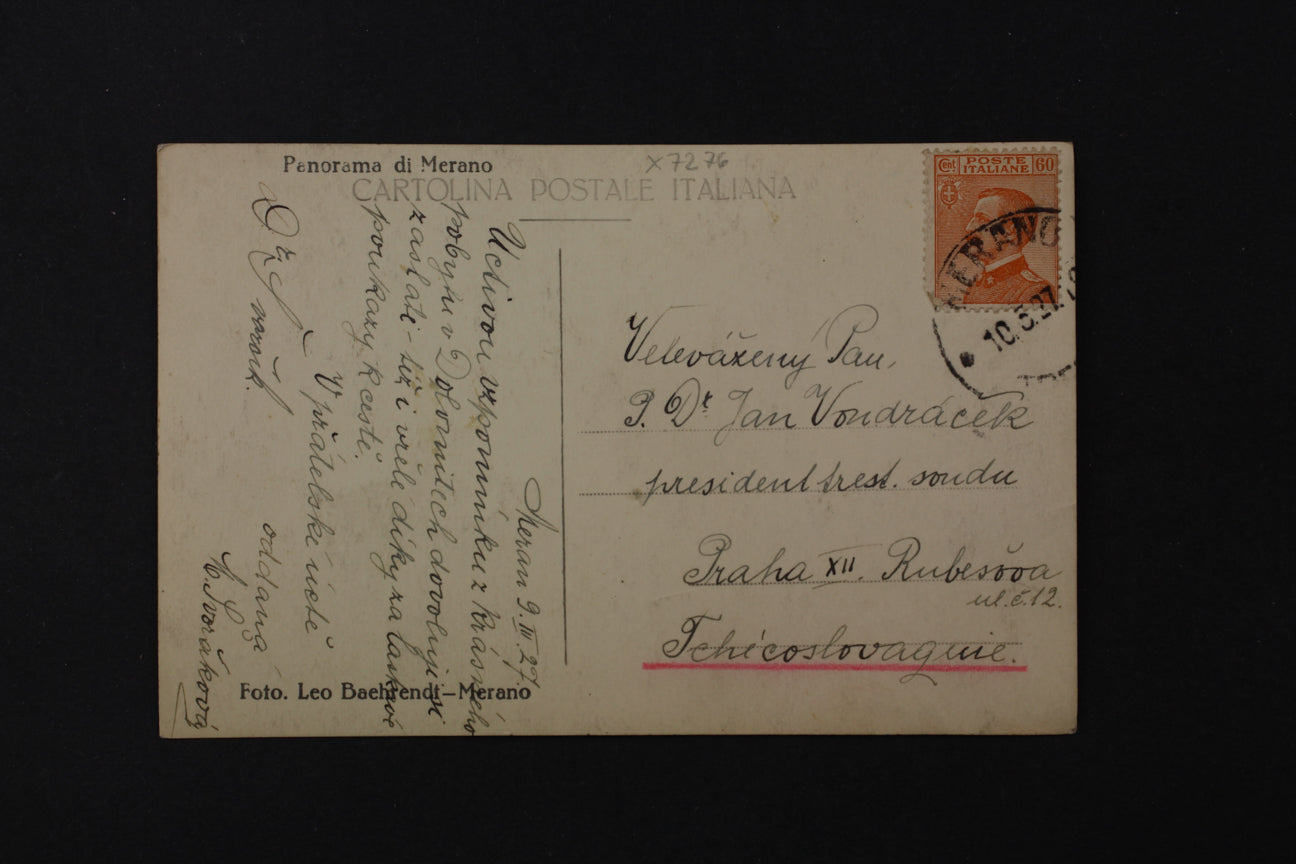 Panorama di Merano
x 7276
CARTOLINA POSTALE ITALIANA
Cent POSTE ITALIANE 60
MERANO
10.3.27
Meran 9. III. 27.
Uctivou vzpomínku z krásného
pobytu v Dolomitech dovoluji si
zaslati - též i vřelé díky za laskavé
poukazy k cestě.
V přátelské úctě
oddaná
Dvořáková
Foto. Leo Baehrendt–Merano
Velevážený Pan,
P. Dr Jan Vondráček
president trest. soudu
Praha XII. Rubešova
ul. č. 12.
Tchécoslovaquie.